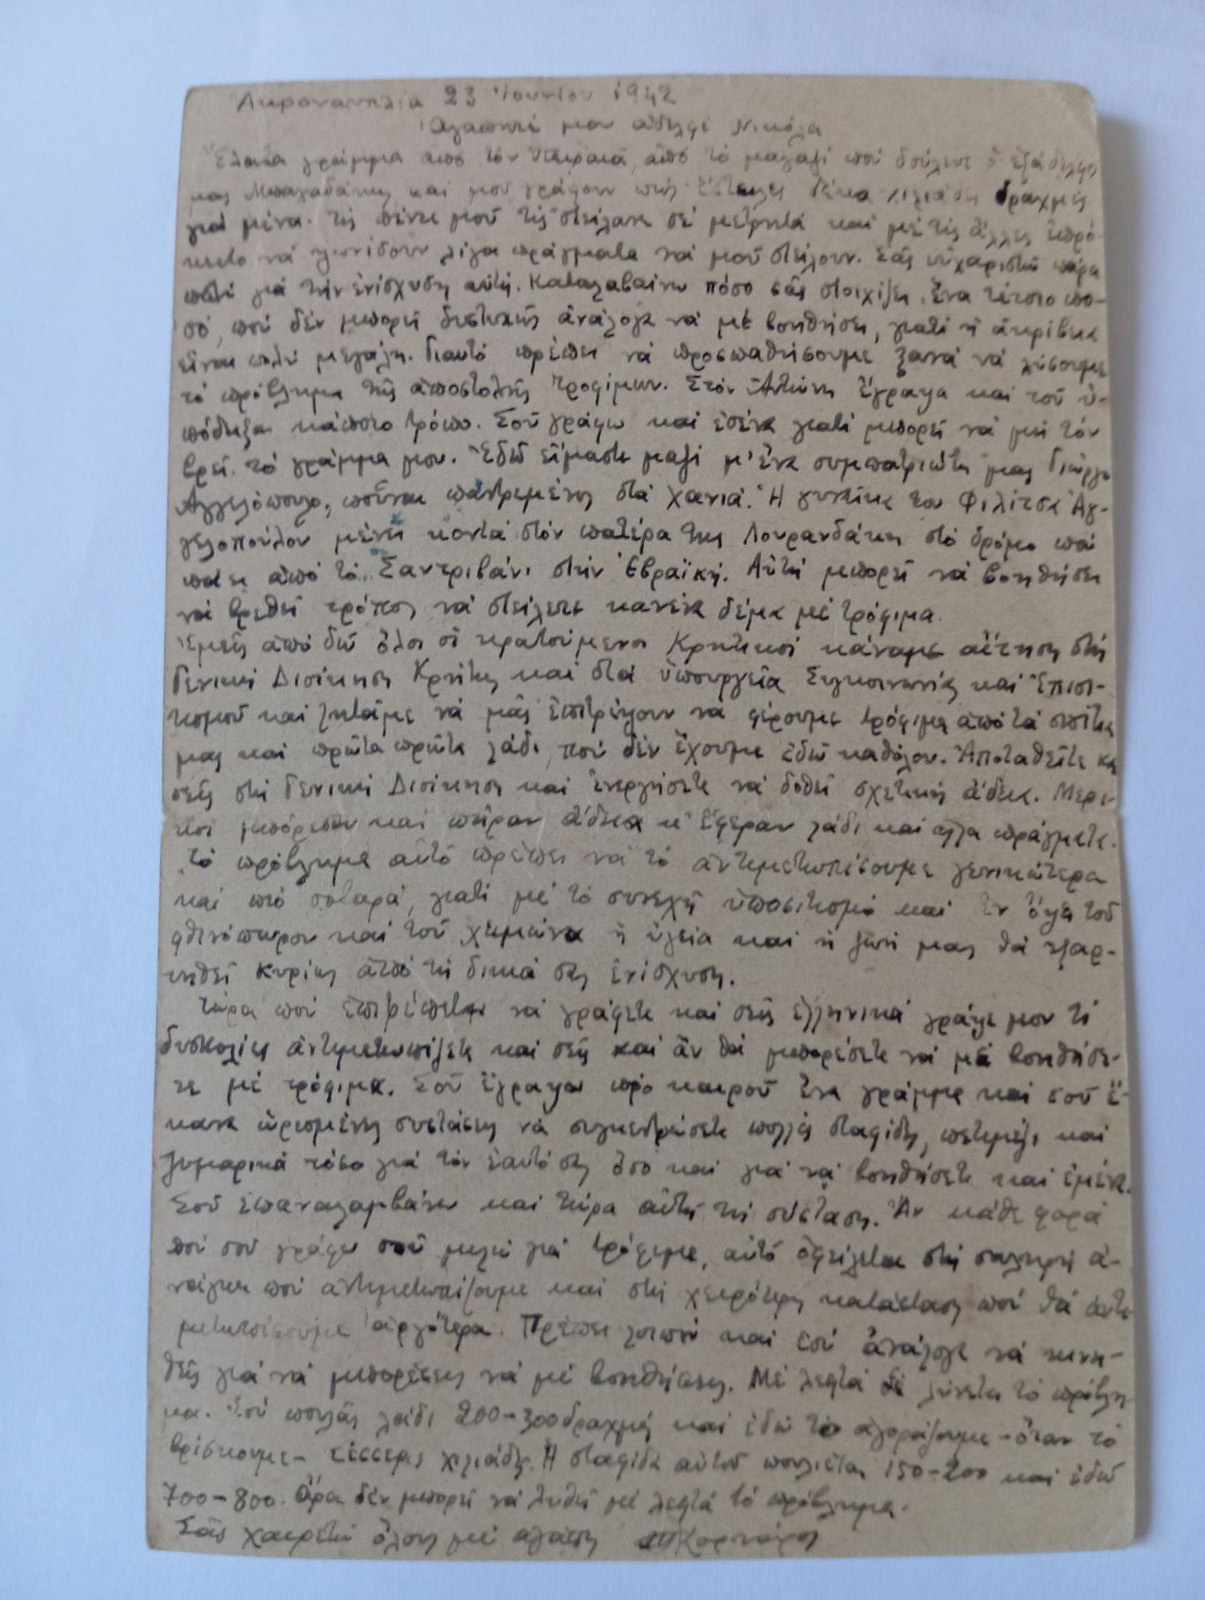 Ακροναυπλία 23 Ἰουνίου 1942
Ἀγαπητέ μου ἀδελφέ Νικόλα
Ἔλαβα γράμμα ἀπό τόν Πειραιᾶ, ἀπό τό μαγαζί πού δούλευε ὁ ἐξάδελφος
μας καί μου γράφουν πώς ἔστειλες δέκα χιλιάδες δραχμές
γιά μένα. Τίς πέντε μοῦ τίς στείλανε σέ μετρητά καί μέ τίς ἄλλες ἐπρό-
κειτο νά ψωνίσουν λίγα πράγματα νά μοῦ στείλουν. Σᾶς εὐχαριστῶ πάρα
πολύ γιά τήν ἐνίσχυση αὐτή. Καταλαβαίνω πόσο σᾶς στοιχίζει ἕνα τέτοιο πο-
σό, πού δέν μπορεῖ δυστυχῶς ἀνάλογα νά μέ βοηθήσει, γιατί ἡ ἀκρίβεια
εἶναι πολύ μεγάλη. Γιαυτό πρέπει νά προσπαθήσουμε ξανά νά λύσουμε
τό πρόβλημα τῆς ἀποστολῆς τροφίμων. Στόν Ἀντώνη ἔγραψα καί τοῦ ὑ-
πόδειξα κάποιο τρόπο. Σοῦ γράφω καί ἐσένα γιατί μπορεῖ νά μή τόν
βρεῖ τό γράμμα μου. Ἐδῶ εἴμαστε μαζί μ' ἕνα συμπατριώτη μας Γιώργο
Ἀγγελόπουλο, ποὖναι παντρεμένος στά Χανιά. Ἡ γυναίκα του Φιλίτσα Ἀγ-
γελοπούλου μένει κοντά στόν πατέρα της Λουρανδάκη στό δρόμο πού
πάει ἀπό τό Σαντριβάνι στήν Ἑβραϊκή. Αὐτή μπορεῖ νά βοηθήσει
νά βρεθεῖ τρόπος νά στείλετε κανένα δέμα μέ τρόφιμα.
Ἐμεῖς ἀπό δῶ ὅλοι οἱ κρατούμενοι Κρητικοί κάναμε αἴτηση στή
Γενική Διοίκηση Κρήτης καί στά ὑπουργεῖα Συγκοινωνίας καί Ἐπισι-
τισμοῦ καί ζητᾶμε νά μᾶς ἐπιτρέψουν νά φέρουμε τρόφιμα ἀπό τά σπίτια
μας καί πρῶτα πρῶτα λάδι, πού δέν ἔχουμε ἐδῶ καθόλου. Ἀποταθεῖτε κα
σεῖς στή Γενική Διοίκηση καί ἐνεργήσετε νά δοθεῖ σχετική ἄδεια. Μερι-
κοί μπόρεσαν καί πῆραν ἄδεια κ' ἔφεραν λάδι καί ἄλλα πράγματα.
Τό πρόβλημα αὐτό πρέπει νά τό ἀντιμετωπίσουμε γενικώτερα
καί πιό σοβαρά, γιατί μέ τό συνεχῆ ὑποσιτισμό καί ἐν ὄψει τοῦ
φθινόπωρου καί τοῦ χειμώνα ἡ ὑγεία καί ἡ ζωή μας θά ἐξαρ-
τηθεῖ κυρίως ἀπό τή δικιά σας ἐνίσχυση.
Τώρα πού ἐπιτρέπεται νά γράφετε καί σεῖς ἑλληνικά γράψε μου τί
δυσκολίες ἀντιμετωπίζετε καί σεῖς καί ἄν θά μπορέσετε νά μέ βοηθήσε-
τε μέ τρόφιμα. Σοῦ ἔγραψα πρό καιροῦ ἕνα γράμμα καί σοῦ ἔ-
κανα ὡρισμένες συστάσεις νά συγκεντρώσετε πολλές σταφίδες, πετιμέζι καί
ζυμαρικά τόσο γιά τόν ἑαυτό σας ὅσο καί γιά νά βοηθήσετε καί ἐμένα.
Σοῦ ἐπαναλαμβάνω καί τώρα αὐτή τή σύσταση. Ἄν κάθε φορά
πού σοῦ γράφω σοῦ μιλῶ γιά τρόφιμα, αὐτό ὀφείλεται στή σκληρή ἀ-
νάγκη πού ἀντιμετωπίζουμε καί στή χειρότερη κατάσταση πού θά ἀντι-
μετωπίσουμε ἀργότερα. Πρέπει λοιπόν καί ἐσύ ἀνάλογα νά κινη-
θεῖς γιά νά μπορέσεις νά μέ βοηθήσεις. Μέ λεφτά δέ λύνεται τό πρόβλη-
μα. Σεῖς πουλᾶς λάδι 200-300 δραχμές καί ἐδῶ τό ἀγοράζουμε - ὅταν τό
βρίσκουμε - τέσσερις χιλιάδες. Ἡ σταφίδα αὐτοῦ πουλιέται 150-200 καί ἐδῶ
700-800. Ἄρα δέν μπορεῖ νά λυθεῖ μέ λεφτά τό πρόβλημα.
Σᾶς χαιρετῶ ὅλους μέ ἀγάπη Κορνάρος